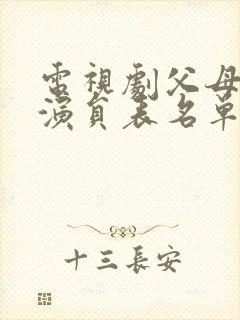 電視劇父母
演員表名單
十三長安